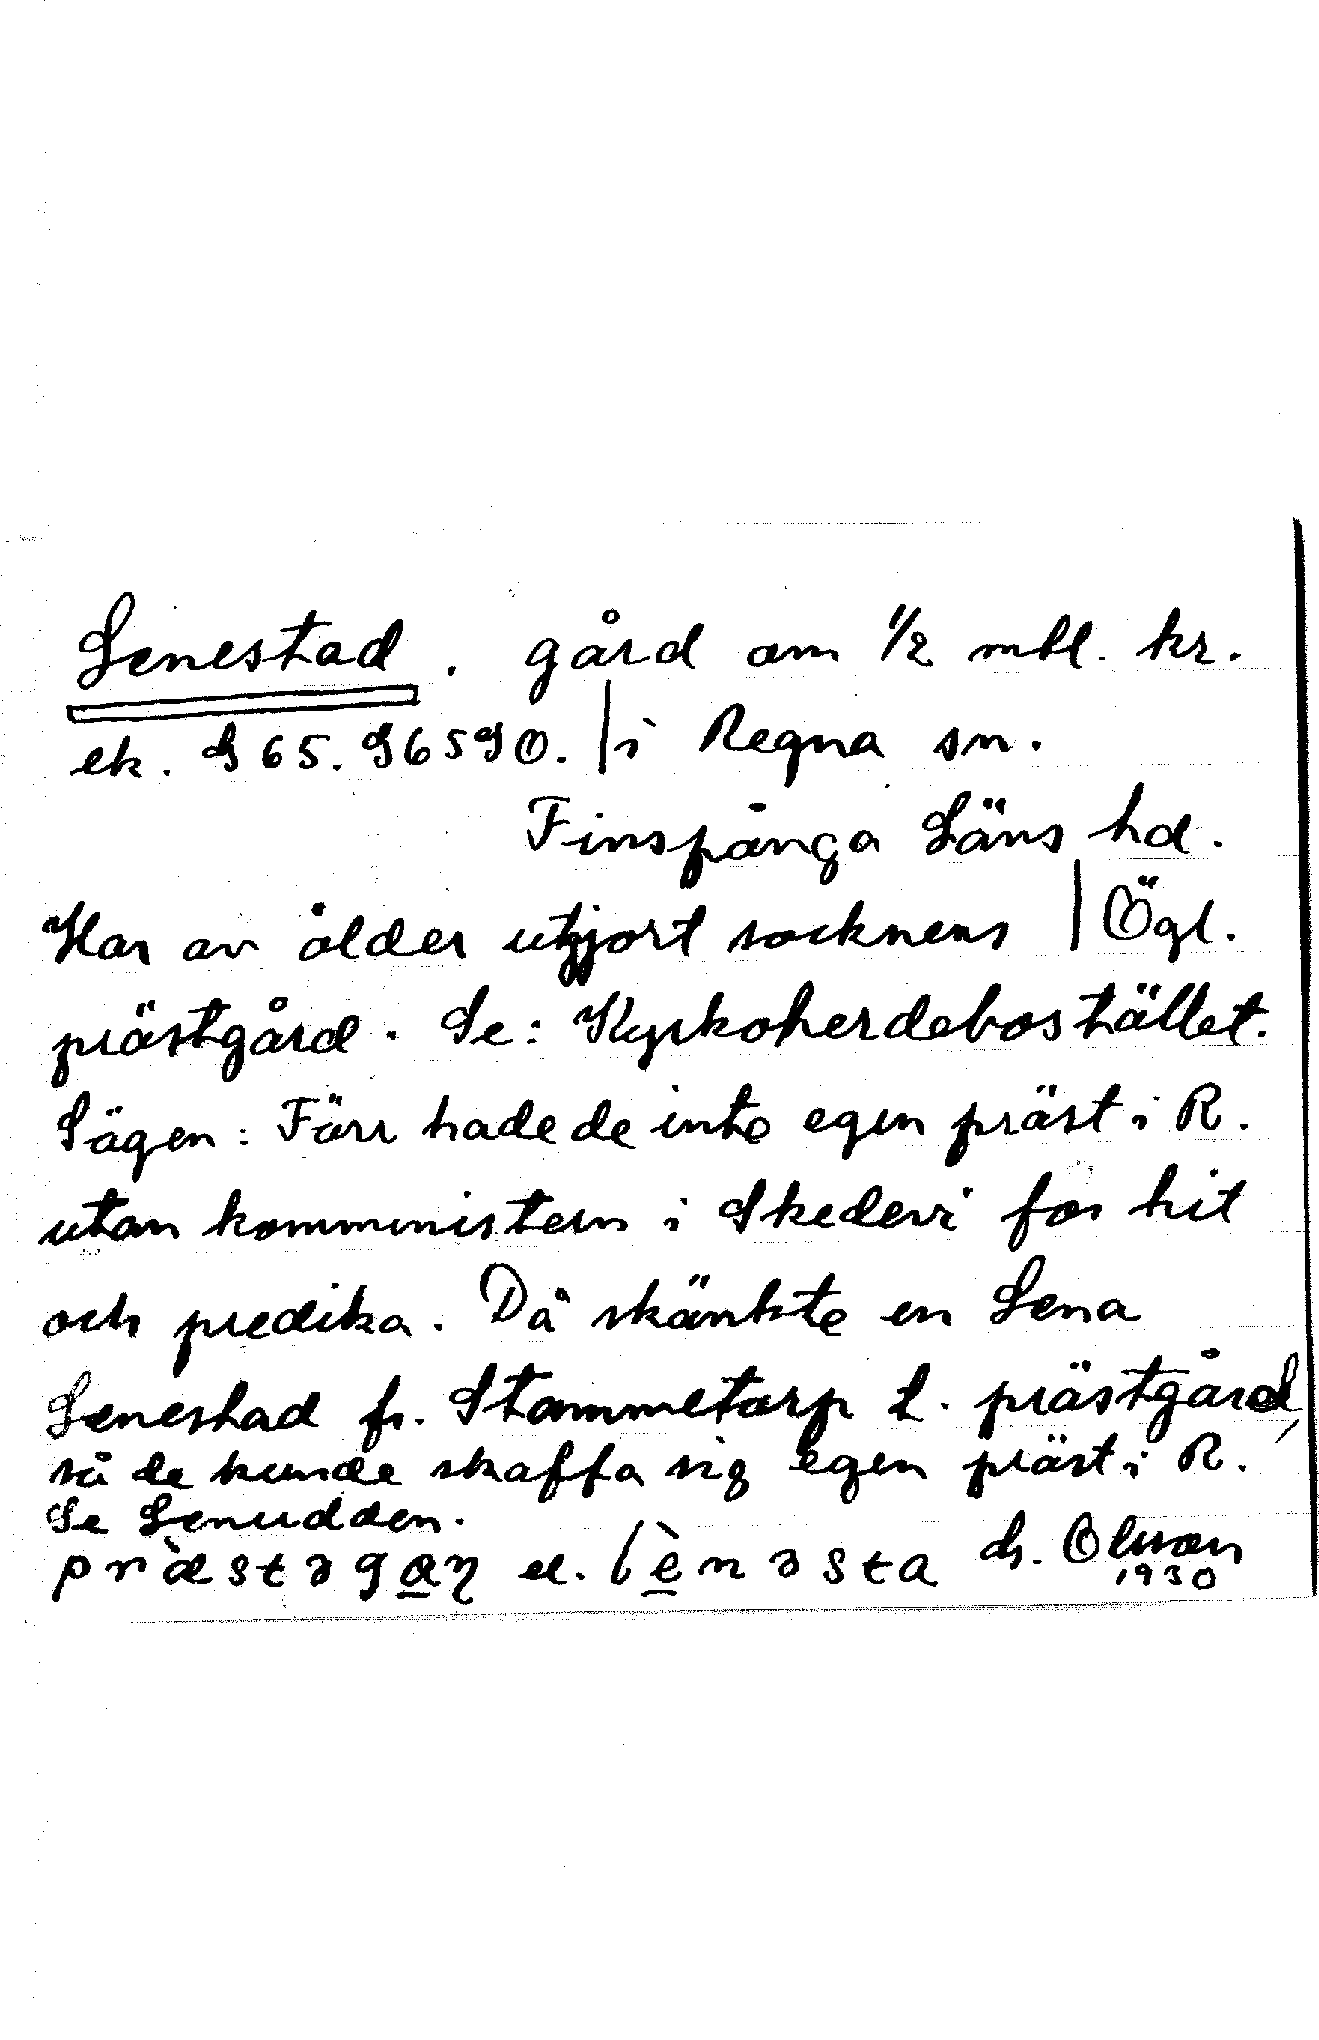 Lenestad. gård om 1/2 mtl. kr.
ek. G 65. 96590. | i Regna sn.
Finspånga Läns hd.
Har av ålder utgjort socknens | Ögl.
prästgård. Se: Kyrkoherdebostället.
Sägen: Förr hade de inte egen präst i R.
utan komministern i Skedevi for hit
och predika. Då skänkte en Lena
Lenestad fr. Stammetorp t. prästgård,
så de kunde skaffa sig egen präst i R.
Se Lenudden.
præ̀stəga̲ɳ el. lè̲nəsta
1930